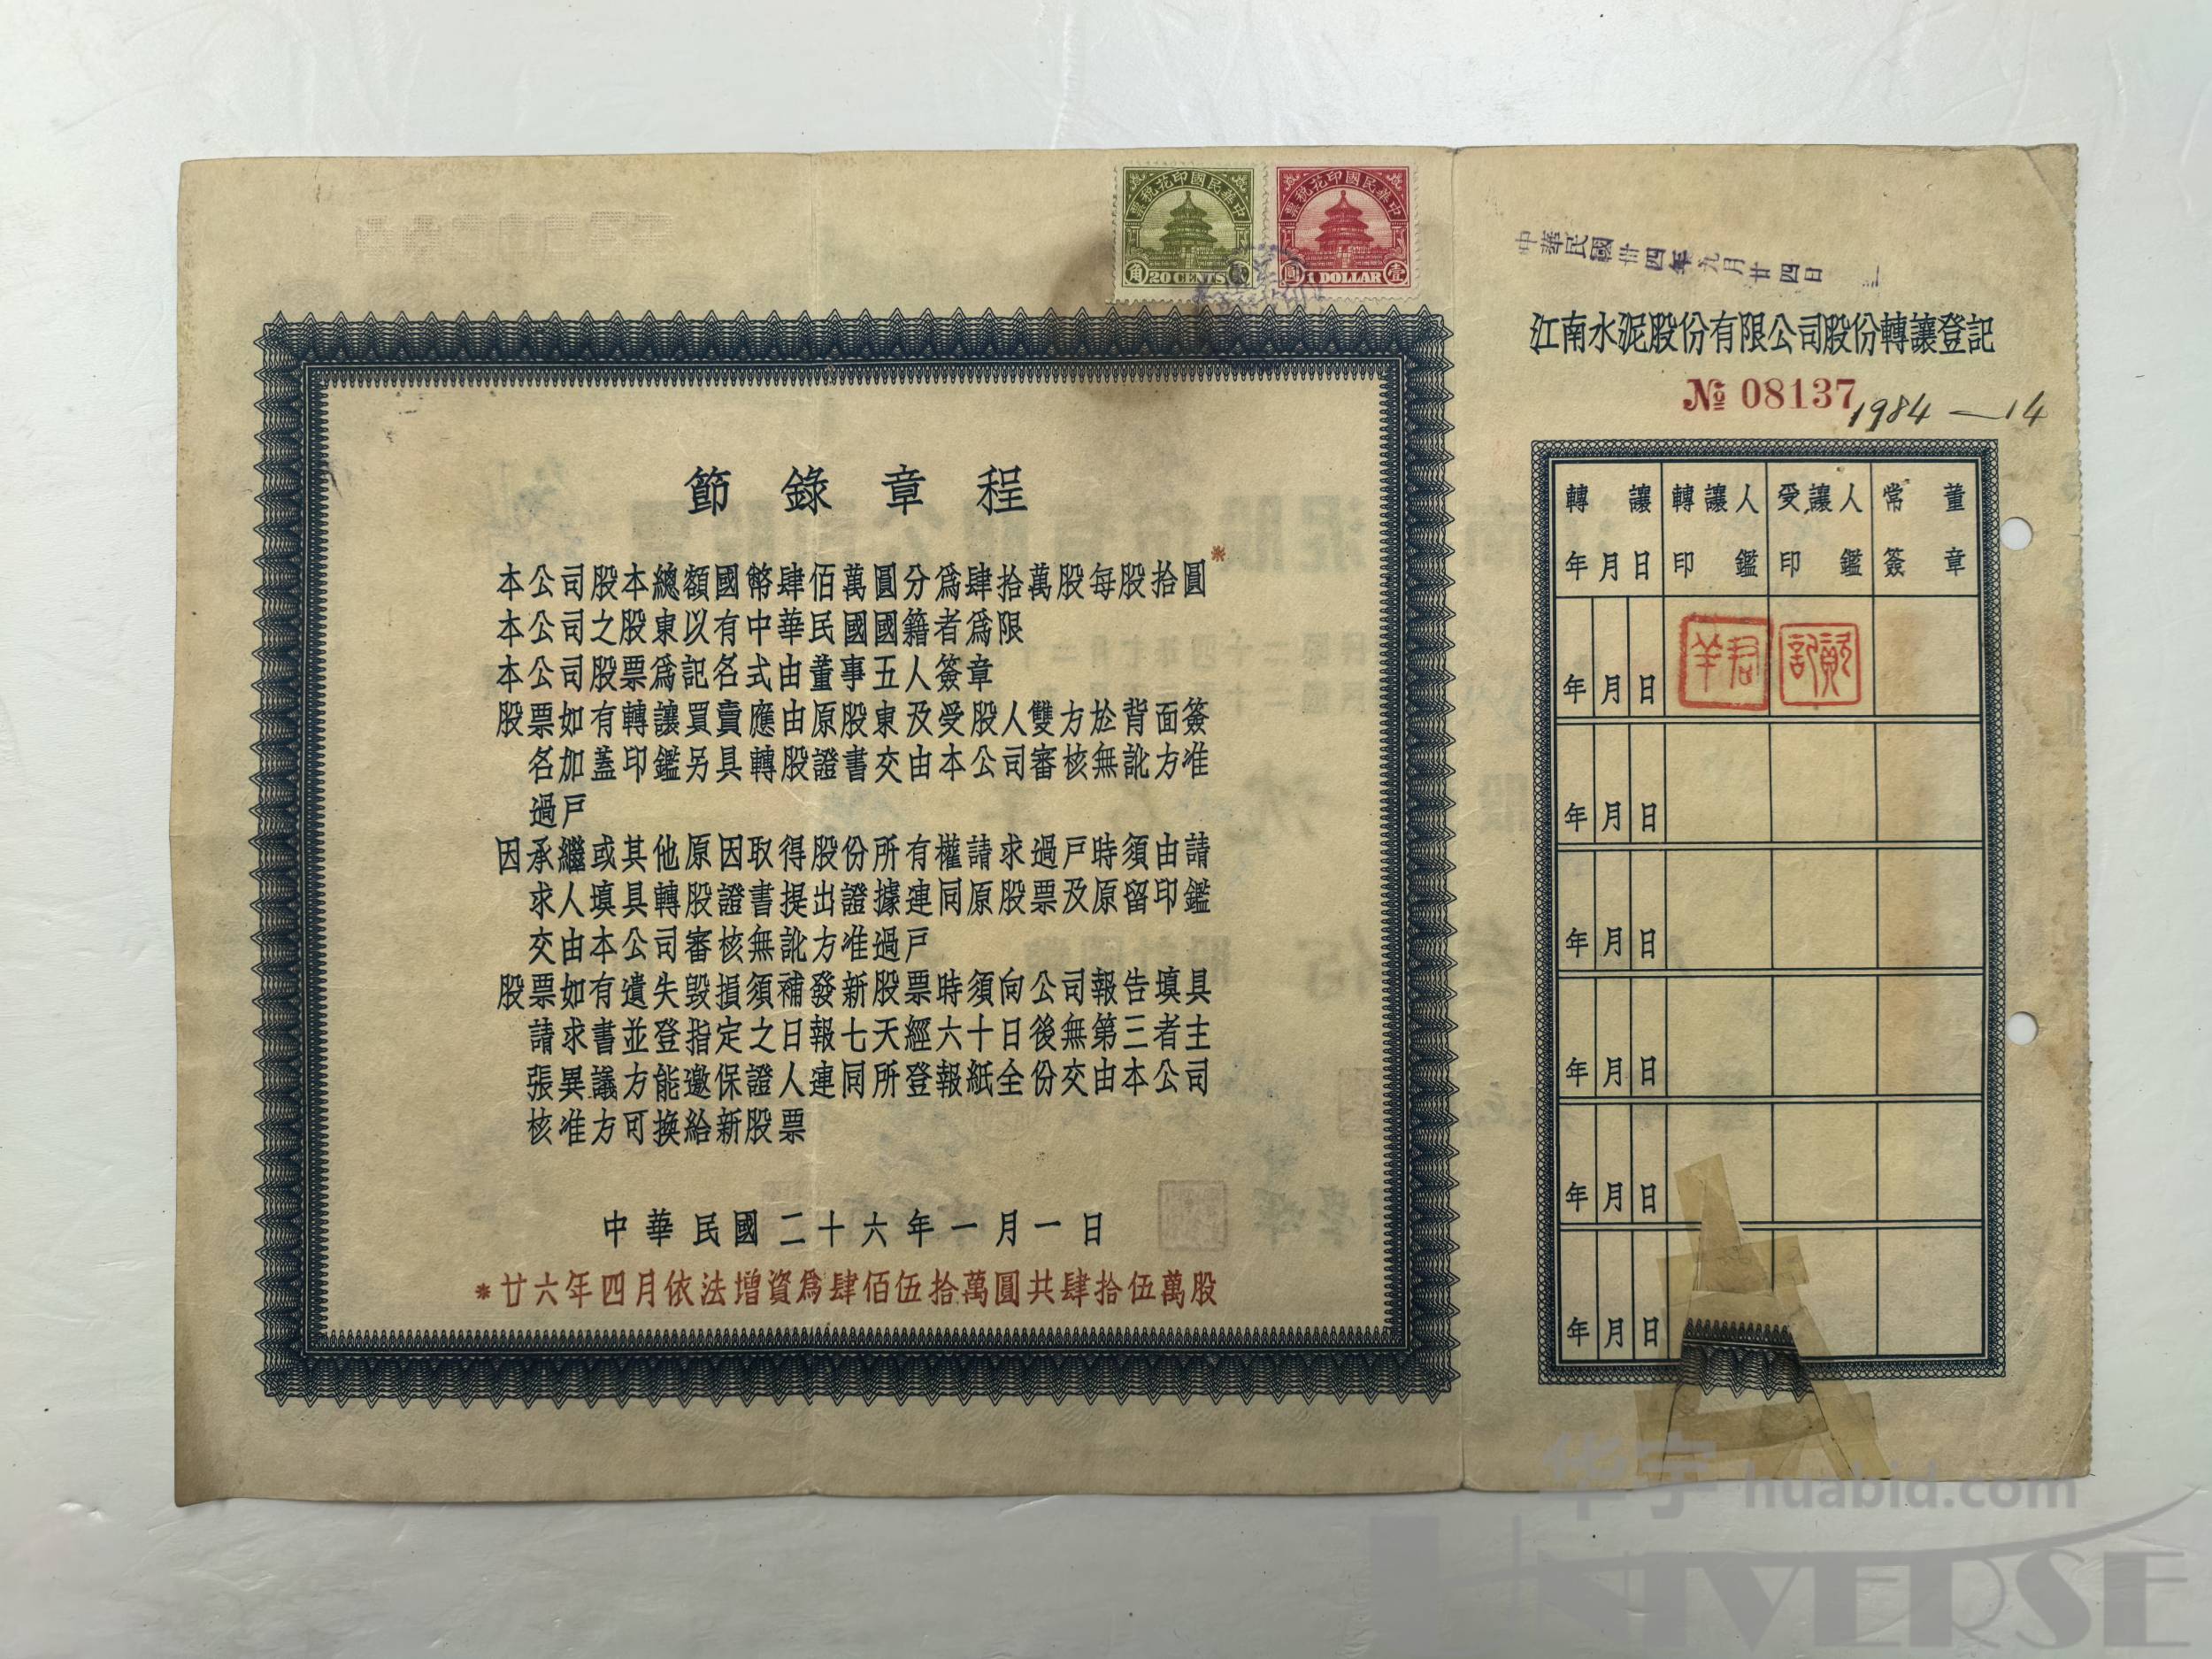 中華民國印花稅票
角 20 CENTS 貳
中華民國印花稅票
圓 1 DOLLAR 壹
節錄章程
本公司股本總額國幣肆佰萬圓分爲肆拾萬股每股拾圓*
本公司之股東以有中華民國國籍者爲限
本公司股票爲記名式由董事五人簽章
股票如有轉讓買賣應由原股東及受股人雙方於背面簽
名加蓋印鑑另具轉股證書交由本公司審核無訛方准
過戶
因承繼或其他原因取得股份所有權請求過戶時須由請
求人填具轉股證書提出證據連同原股票及原留印鑑
交由本公司審核無訛方准過戶
股票如有遺失毀損須補發新股票時須向公司報告填具
請求書並登指定之日報七天經六十日後無第三者主
張異議方能邀保證人連同所登報紙全份交由本公司
核准方可換給新股票
中華民國二十六年一月一日
*廿六年四月依法增資爲肆佰伍拾萬圓共肆拾伍萬股
中華民國卅四年九月廿四日
江南水泥股份有限公司股份轉讓登記
№ 08137
1984—14
轉讓 轉讓人 受讓人 常董
年月日 印鑑 印鑑 簽章
年月日
年月日
年月日
年月日
年月日
年月日
华宇 huabid.com
UNIVERSE